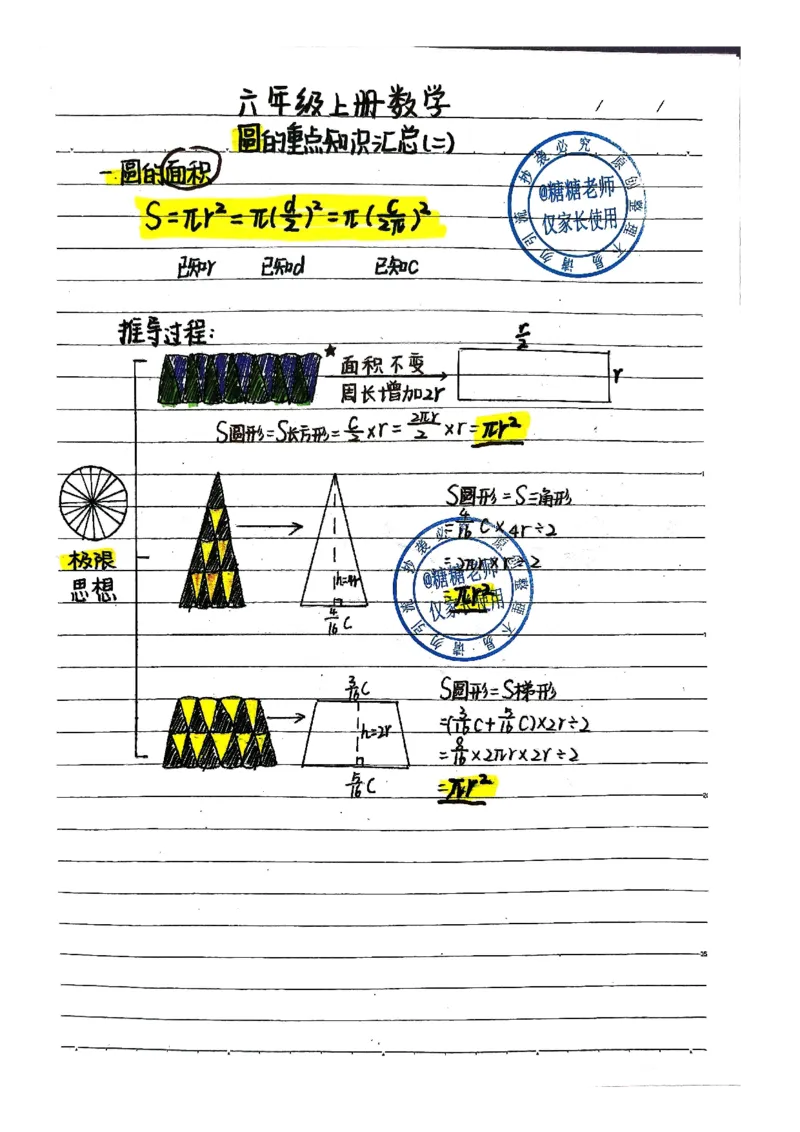 六年级上册数学
/ /
圆的重点知识汇总(二)
一.圆的面积
S=πr²=π(d/2)²=π(C/2π)²
已知r 已知d 已知C
抄袭必究 原创整理不易 请勿引流
@糖糖老师
仅家长使用
推导过程:
★面积不变
周长增加2r
r/2
r
S圆形=S长方形=C/2×r=2πr/2×r=πr²
极限
思想
h=4r
4/16C
S圆形=S三角形
=4/16C×4r÷2
=2πr×r÷2
=πr²
抄袭必究 原创整理不易 请勿引流
@糖糖老师
仅家长使用
3/16C
h=2r
5/16C
S圆形=S梯形
=(3/16C+5/16C)×2r÷2
=8/16×2πr×2r÷2
=πr²